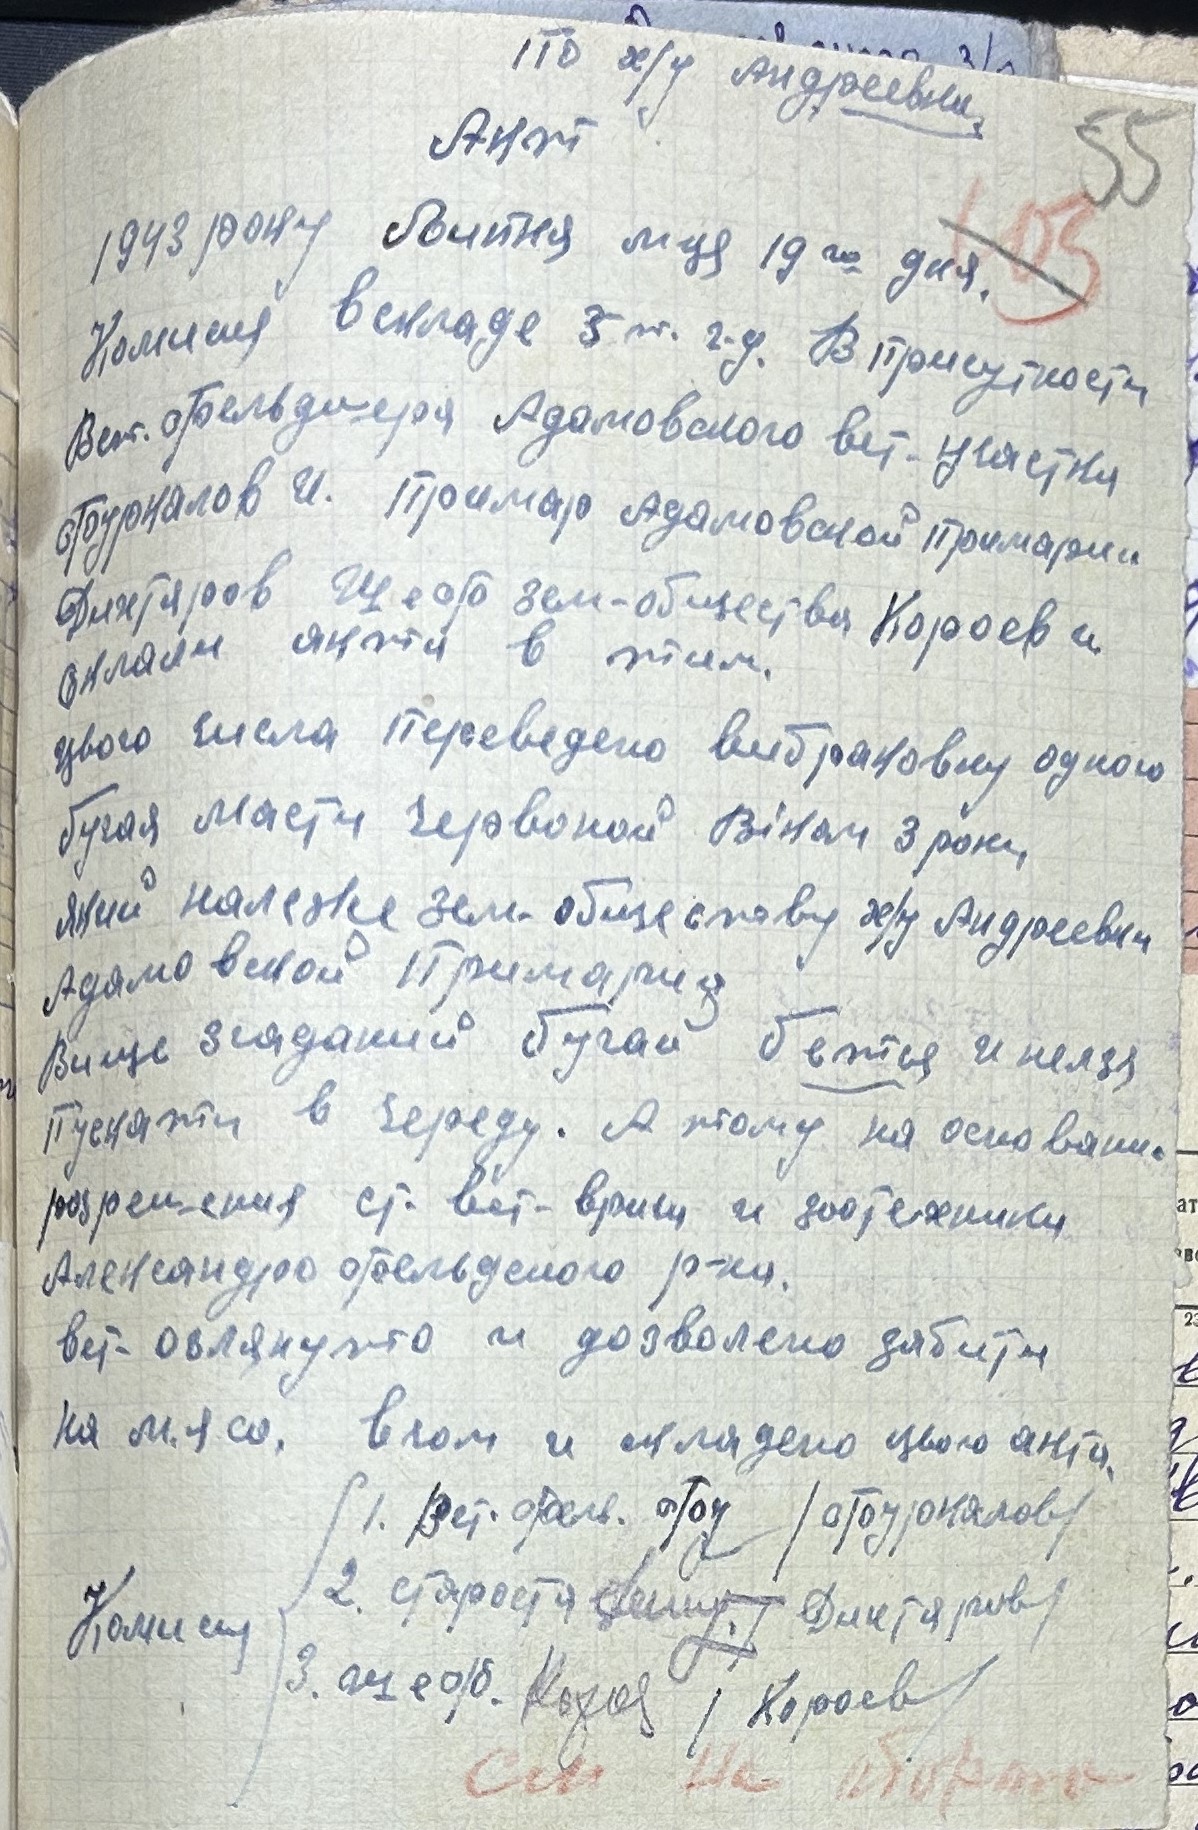 По х/у Андреевки
55
Акт
103
1943 року Квітня м-ця 19го дня.
Комисия в складе 3 т. г.д. В присутности
Вет. фельдшера Адамовского вет-участка
Фуркалов И. Примар Адамовской Примарии
Дихтяров Шеф зем-общества Короев и
склали акта в тим.
цього числа переведено вибраковку одного
бугая масти червоной Віком 3 роки
який належе зем-обществу х/у Андреевки
Адамовской Примария
Вище згаданий бугай бется и нелзя
пускати в череду. А тому на основани
розрешения ст. вет-врача и зоотехники
Александрофельдского р-на.
вет-оглянуто и дозволено забити
на м.ясо. в чом и складено цього акта.
1. Вет. фель. Фу /Фурка­лов/
Комисия
2. староста /Дихтяров/
3. шеф. Короев /Короев/
См на обороте